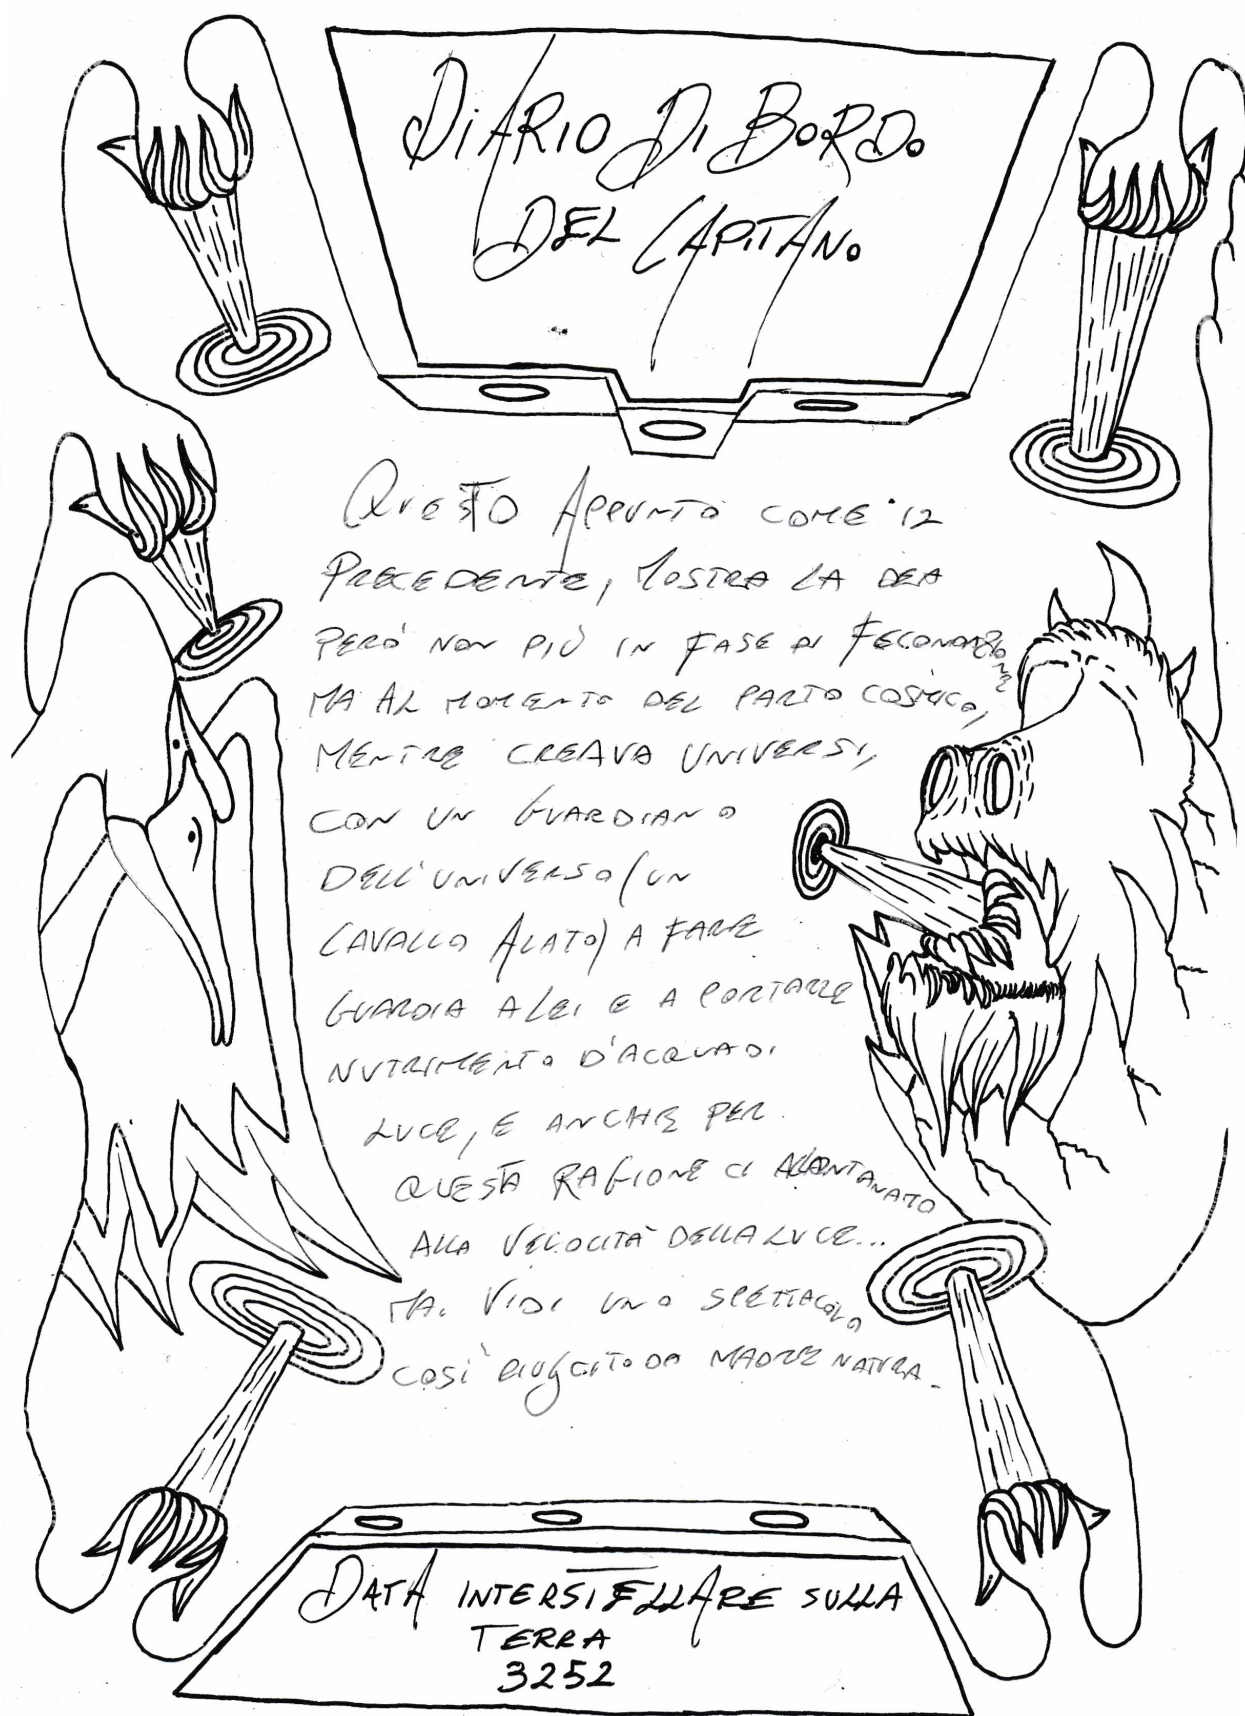 DIARIO DI BORDO
DEL CAPITANO
QUESTO APPUNTO COME IL
PRECEDENTE, MOSTRA LA DEA
PERÒ NON PIÙ IN FASE DI FECONDAZIONE
MA AL MOMENTO DEL PARTO COSMICO,
MENTRE CREAVA UNIVERSI,
CON UN GUARDIANO
DELL'UNIVERSO (UN
CAVALLO ALATO) A FARE
GUARDIA A LEI E A PORTARLE
NUTRIMENTO D'ACQUA DI
LUCE, E ANCHE PER
QUESTA RAGIONE CI ALLONTANATO
ALLA VELOCITÀ DELLA LUCE...
MAI VIDI UNO SPETTACOLO
COSÌ RIUSCITO DA MADRE NATURA.
DATA INTERSTELLARE SULLA
TERRA
3252